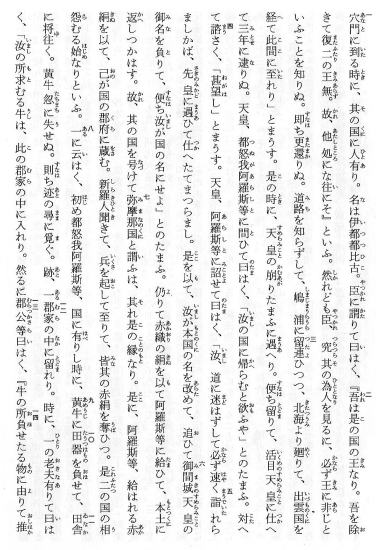 穴門に到る時に、其の国に人有り。名は伊都都比古。臣に謂りて曰はく、『吾は是の国の王なり。吾を除
きて復二の王無。故、他処にな往にそ』といふ。然れども臣、究其の為人を見るに、必ず王に非じと
いふことを知りぬ。即ち更還りぬ。道路を知らずして、嶋浦に留連ひつつ、北海より廻りて、出雲国を
経て此間に至れり」とまうす。是の時に、天皇の崩りたまふに遇へり。便ち留りて、活目天皇に仕へ
て三年に逮りぬ。天皇、都怒我阿羅斯等に問ひて曰はく、「汝の国に帰らむと欲ふや」とのたまふ。対へ
て諮さく、「甚望し」とまうす。天皇、阿羅斯等に詔せて曰はく、「汝、道に迷はずして必ず速く詣れら
ましかば、先皇に遇ひて仕へたてまつらまし。是を以て、汝が本国の名を改めて、追ひて御間城天皇の
御名を負りて、便ち汝が国の名にせよ」とのたまふ。仍りて赤織の絹を以て阿羅斯等に給ひて、本土に
返しつかはす。故、其の国を号けて弥摩那国と謂ふは、其れ是の縁なり。是に、阿羅斯等、給はれる赤
絹を以て、己が国の郡府に蔵む。新羅人聞きて、兵を起して至りて、皆其の赤絹を奪ひつ。是二の国の相
怨むる始なりといふ。一に云はく、初め都怒我阿羅斯等、国に有りし時に、黄牛に田器を負せて、田舎
に将往く。黄牛忽に失せぬ。則ち迹の尋に覓ぐ。跡、一郡家の中に留れり。時に、一の老夫有りて曰は
く、「汝の求むる牛は、此の郡家の中に入れり。然るに郡公等曰はく、『牛の所負せたる物に由りて推